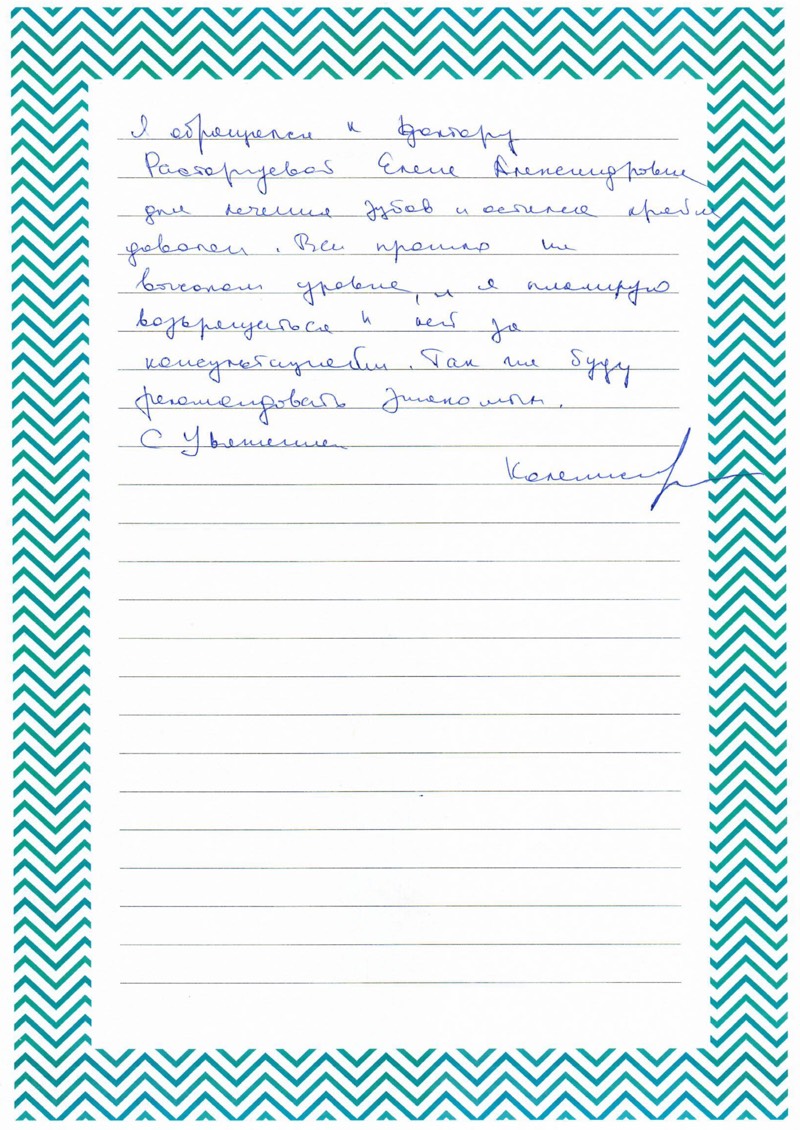 Я обращался к доктору
Расторгуевой Елене Александровне
для лечения зубов и остался крайне
доволен. Все прошло на
высоком уровне, и я планирую
возвращаться к ней за
консультациями. Так же буду
рекомендовать знакомым.
С Уважением